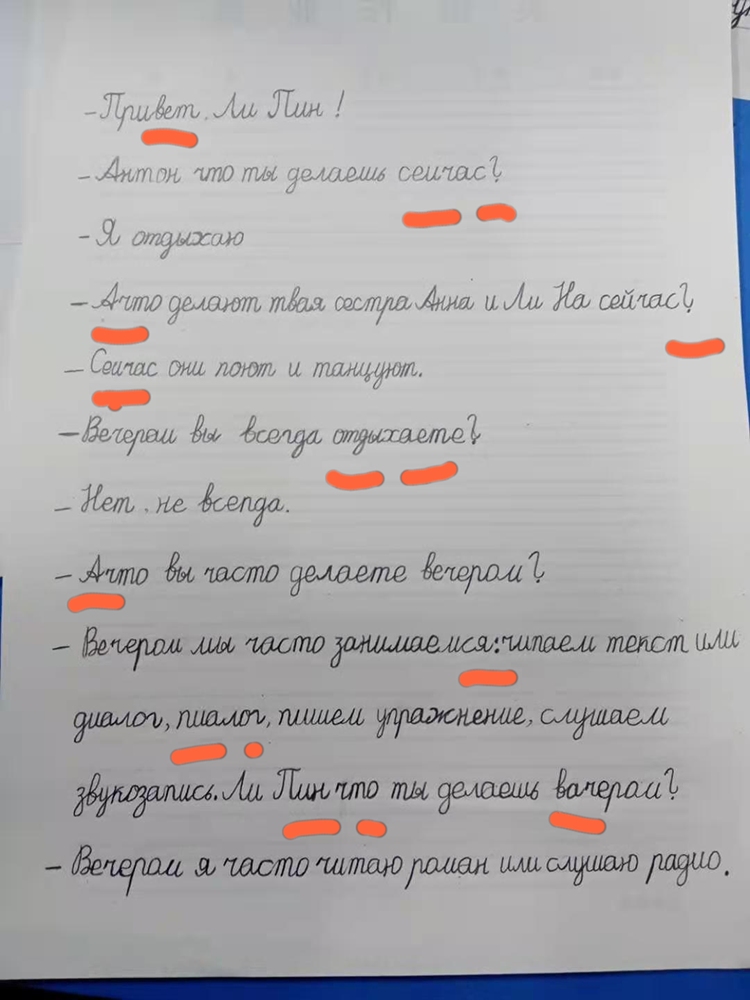 -Привет. Ли Пин!
-Антон что ты делаешь сеичас?
-Я отдыхаю
-Ачто делают твая сестра Анна и Ли На сейчас?
-Сеичас они поют и танцуют.
-Вечером вы всегда отдыхаете?
-Нет, не всегда.
-Ачто вы часто делаете вечером?
-Вечером мы часто занимаемся: читаем текст или
диалог, пиалог, пишем упражнение, слушаем
звукозапись. Ли Пин что ты делаешь вачером?
-Вечером я часто читаю роман или слушаю радио.